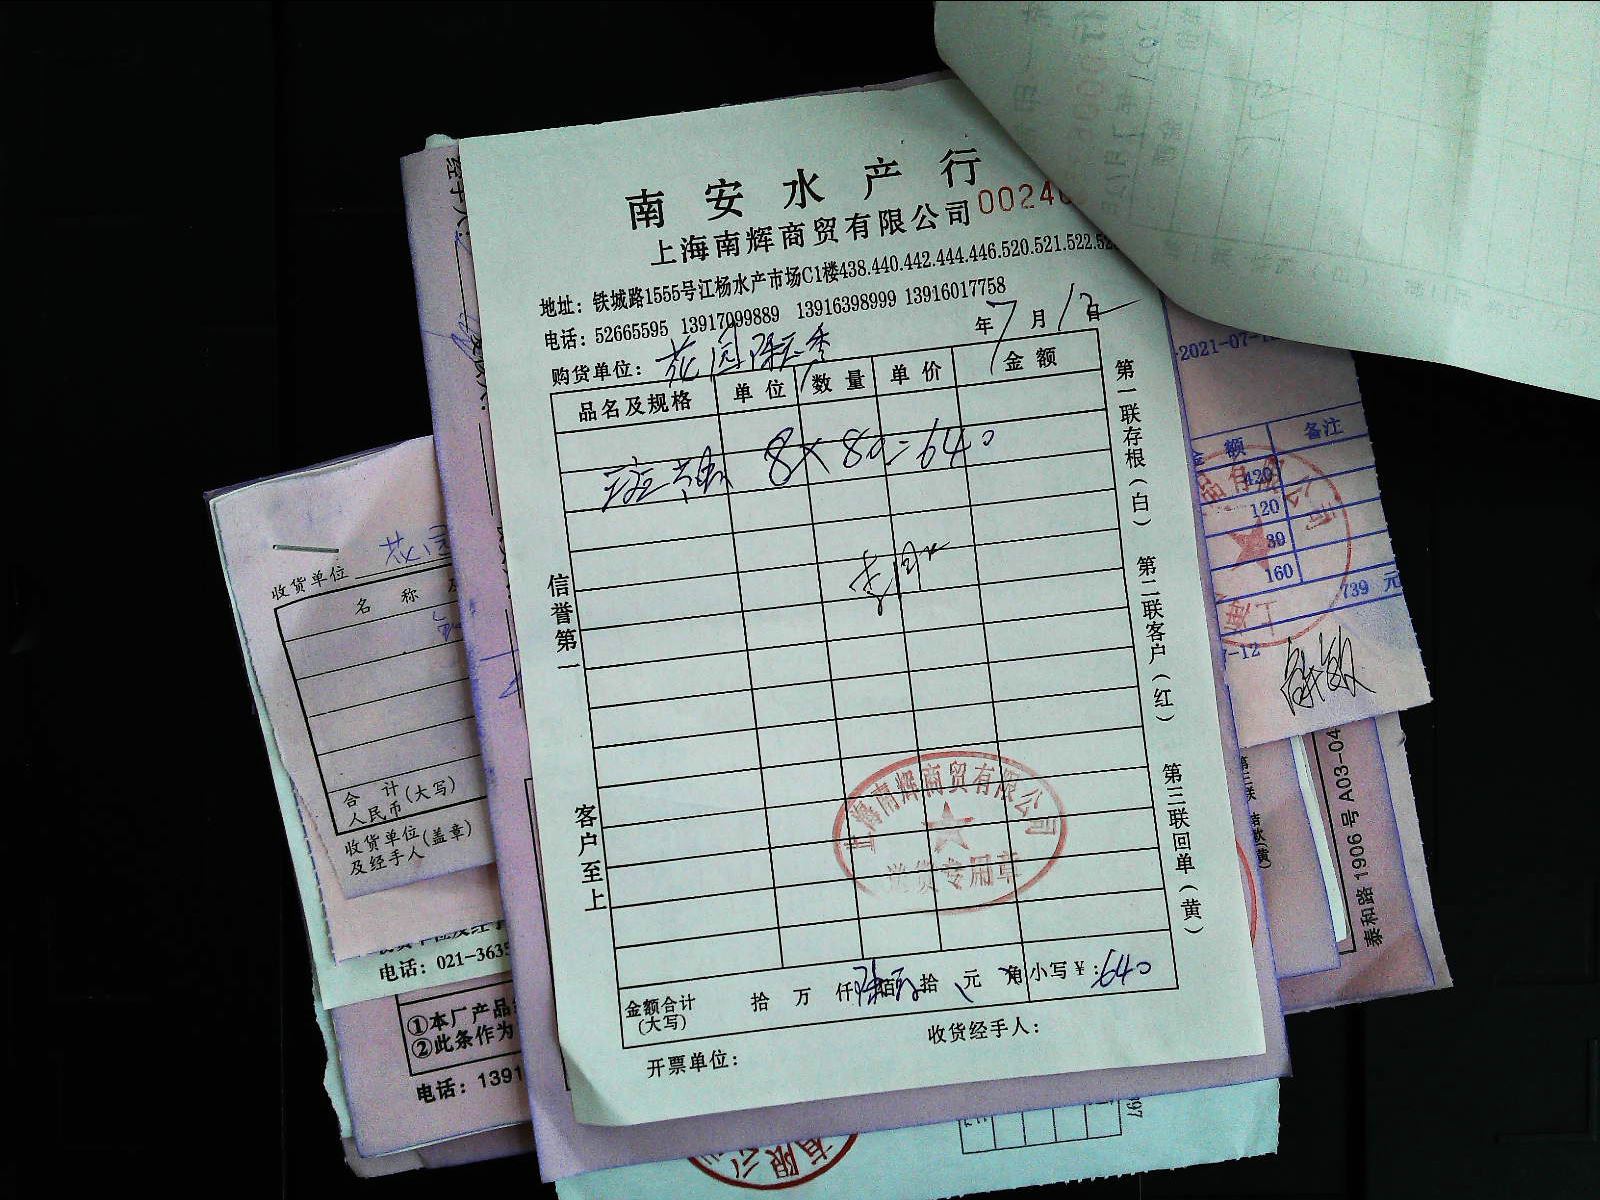 南安水产行
上海南辉商贸有限公司 00240
地址：铁城路1555号江杨水产市场C1楼438.440.442.444.446.520.521.522.52
电话：52665595 13917099889 13916398999 13916017758
年 7 月 12 日
购货单位：花园
品名及规格 单位 数量 单价 金额
8×80=640
信誉第一
客户至上
第一联存根（白） 第二联客户（红） 第三联回单（黄）
上海南辉商贸有限公司
送货专用章
金额合计(大写) 拾 万 仟 陆佰 拾 元 角 小写￥：640
开票单位：
收货经手人：
收货单位 花园
名 称 及
合 计
人民币(大写)
收货单位(盖章)
及经手人
电话：021-3635
①本厂产品
②此条作为
电话：1391
2021-07-1
金 额 备注
420
120
39
160
739 元
7-12
有限公司
泰和路 1906 号 A03-04